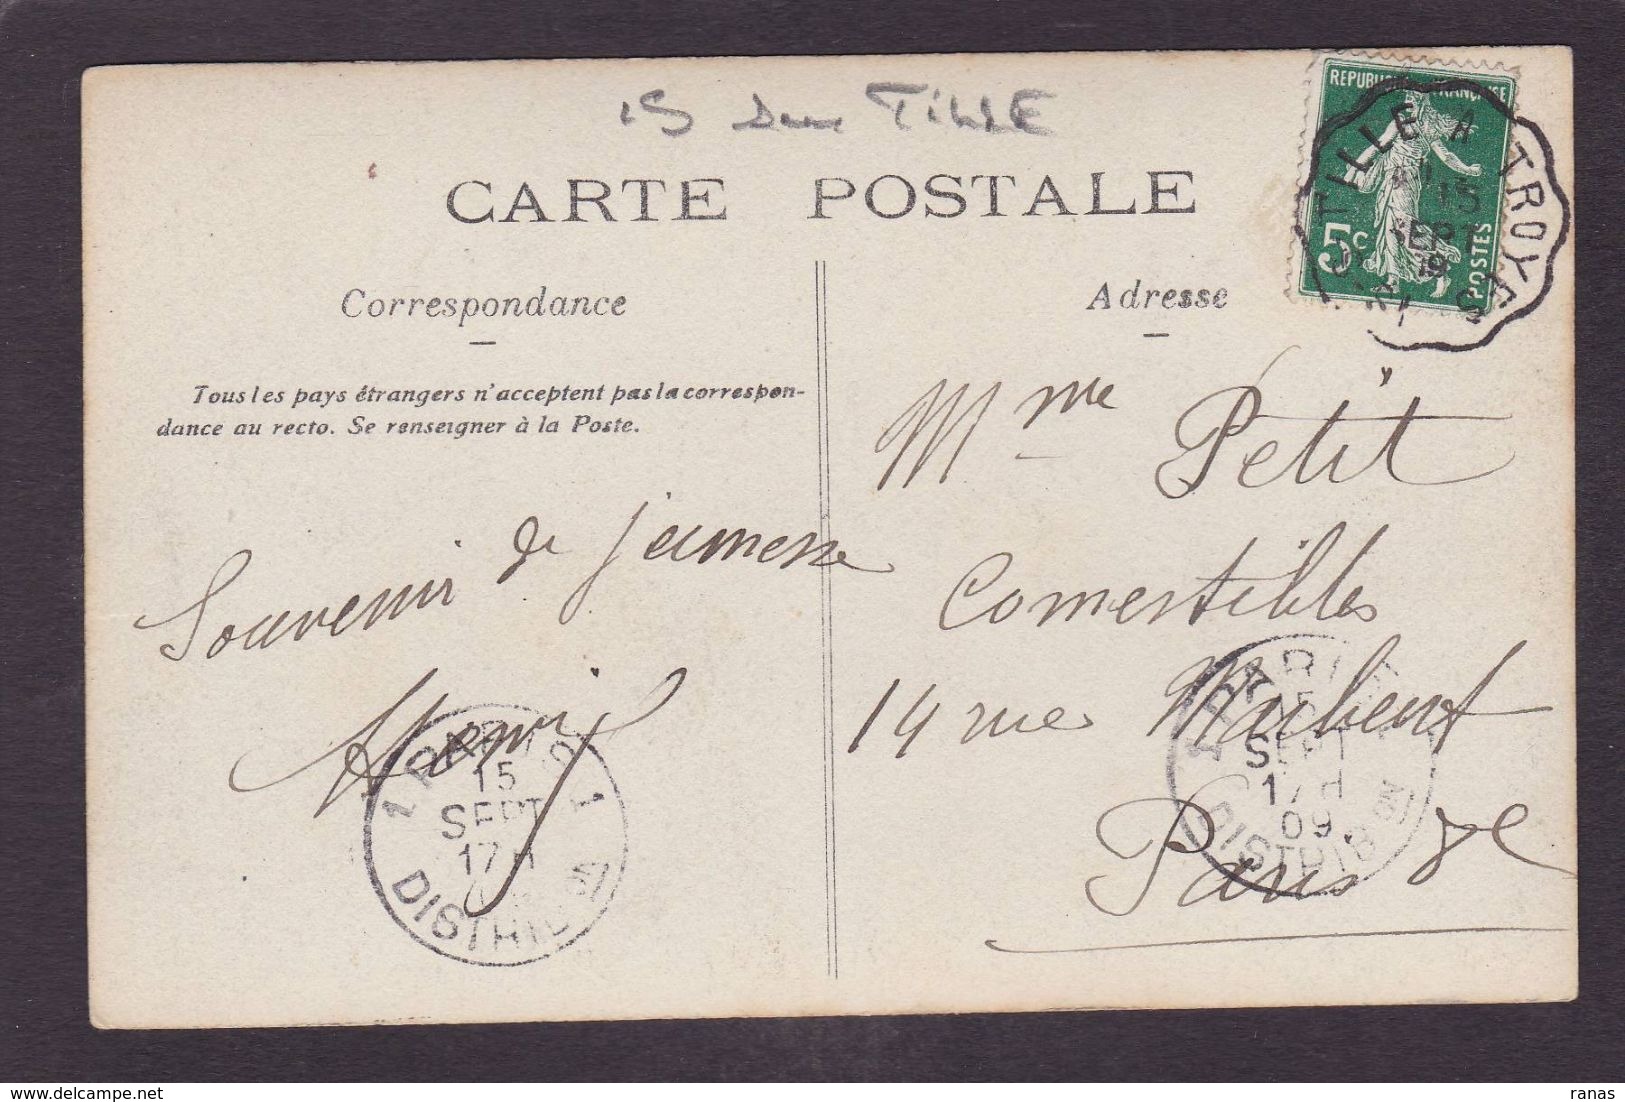 IS Sur TILLE
CARTE POSTALE
REPUBLIQUE FRANÇAISE
5c
POSTES
TILLE A TROYES
15
SEPT
Correspondance
Adresse
Tous les pays étrangers n'acceptent pas la correspon-
dance au recto. Se renseigner à la Poste.
Souvenir de jeunesse
Henry
Mme Petit
Comestibles
14 rue
Paris
PARIS
15
SEPT
17H
DISTRIB
PARIS
SEPT
17H
09
DISTRIB
ranas